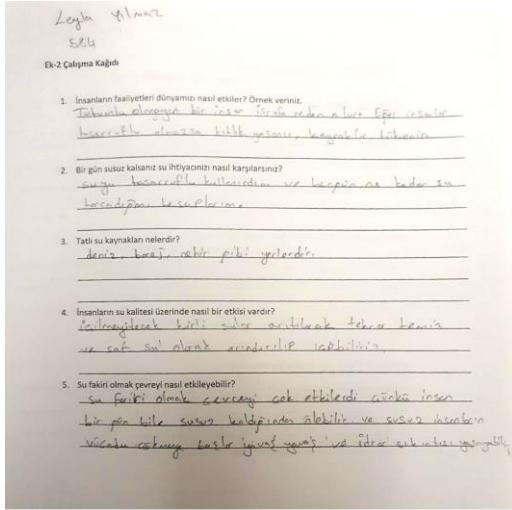 Leyla Yılmaz
584
Ek-2 Çalışma Kağıdı
1. İnsanların faaliyetleri dünyamızı nasıl etkiler? Örnek veriniz.
Tutumlu olmayan bir insan israfa neden olur. Eğer insanlar
tasarruflu olmazsa kıtlık yaşanır, kaynaklar tükenir
2. Bir gün susuz kalsanız su ihtiyacınızı nasıl karşılarsınız?
suyu tasarruflu kullanırdım ve hergün ne kadar su
harcadığımı hesaplarım.
3. Tatlı su kaynakları nelerdir?
deniz, baraj, nehir gibi yerlerdir.
4. İnsanların su kalitesi üzerinde nasıl bir etkisi vardır?
kirli sular arıtılarak tekrar temiz
ve saf su olarak arındırılıp içebiliriz.
5. Su fakiri olmak çevreyi nasıl etkileyebilir?
su fakiri olmak çevreyi çok etkilerdi çünkü insan
bir gün bile susuz kaldığından ölebilir. ve susuz insanların
vücudu çökmeye başlar yavaş yavaş ve idrar sıkıntısı yaşayabilir